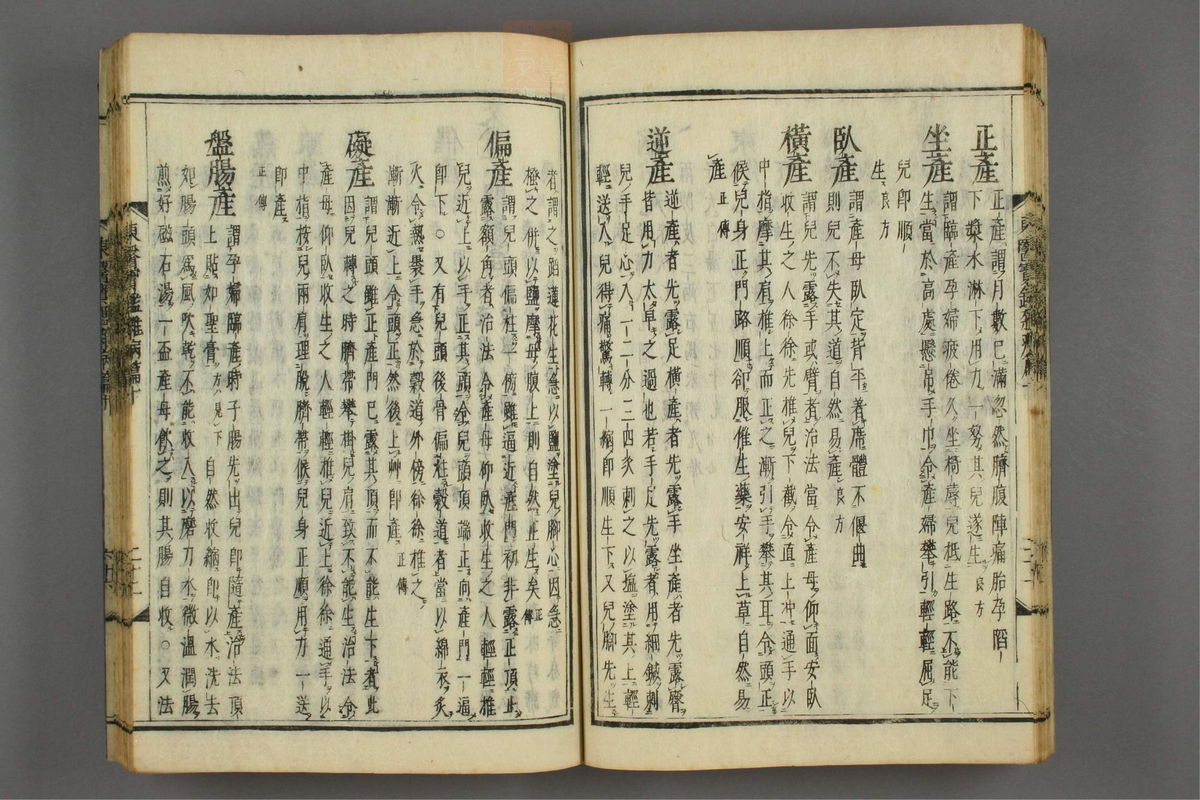 正產 正產謂月數已滿忽然臍腹陣痛胎孕陷
下漿水淋下用力一努其兒遂生 良方
坐產 謂臨產孕婦疲倦久坐椅蓐兒抵生路不能下
生當於高處懸吊手巾令產婦攀引輕輕屈足
兒卽順
生 良方
臥產 謂產母臥定背平著席體不偃曲
則兒不失其道自然易產 良方
橫產 謂兒先露手或臂者治法當令產母仰面安臥
收生之人徐徐先推兒下截令直上冲通手以
中指摩其肩推上而正之漸引手攀其耳令頭正
候兒身正門路順卻服催生藥安祥上草自然易
產 正傳
逆產 逆產者先露足橫產者先露手坐產者先露臀
皆用力太早之過也若手足先露者用細鍼刺
兒手足心入一二分三四次刺之以塩塗其上輕
輕送入兒得痛驚轉一縮卽順生下又兒脚先生
者謂之蹈蓮花生急以鹽塗兒腳心因急
搔之併以鹽摩母腹上則自然正生矣 正傳
偏產 謂兒頭偏柱一傍雖逼近產門初非露正頂止
露額角者治法令產母仰臥收生之人輕輕推
兒近上以手正其頭令兒頭頂端正向產門一逼
卽下○又有兒頭後骨偏柱穀道者當以綿衣炙
火令熱裹手急於穀道外傍徐徐推之
漸漸近上令頭正然後上艸卽產 正傳
礙產 謂兒頭雖正產門已露其頂而不能生下者此
因兒轉之時臍帶攀掛兒肩致不能生治法令
產母仰臥收生之人輕推兒近上徐徐通手以
中指按兒兩肩理脫臍帶候兒身正順用力一送
卽產
正傳
盤腸產 謂孕婦臨產時子腸先出兒卽隨產治法頂
上貼如聖膏 方見下 自然收縮卽以水洗去
如腸頭爲風吹乾不能收入以磨刀水微溫潤腸
煎好磁石湯一盃產母飮之則其腸自收○又法